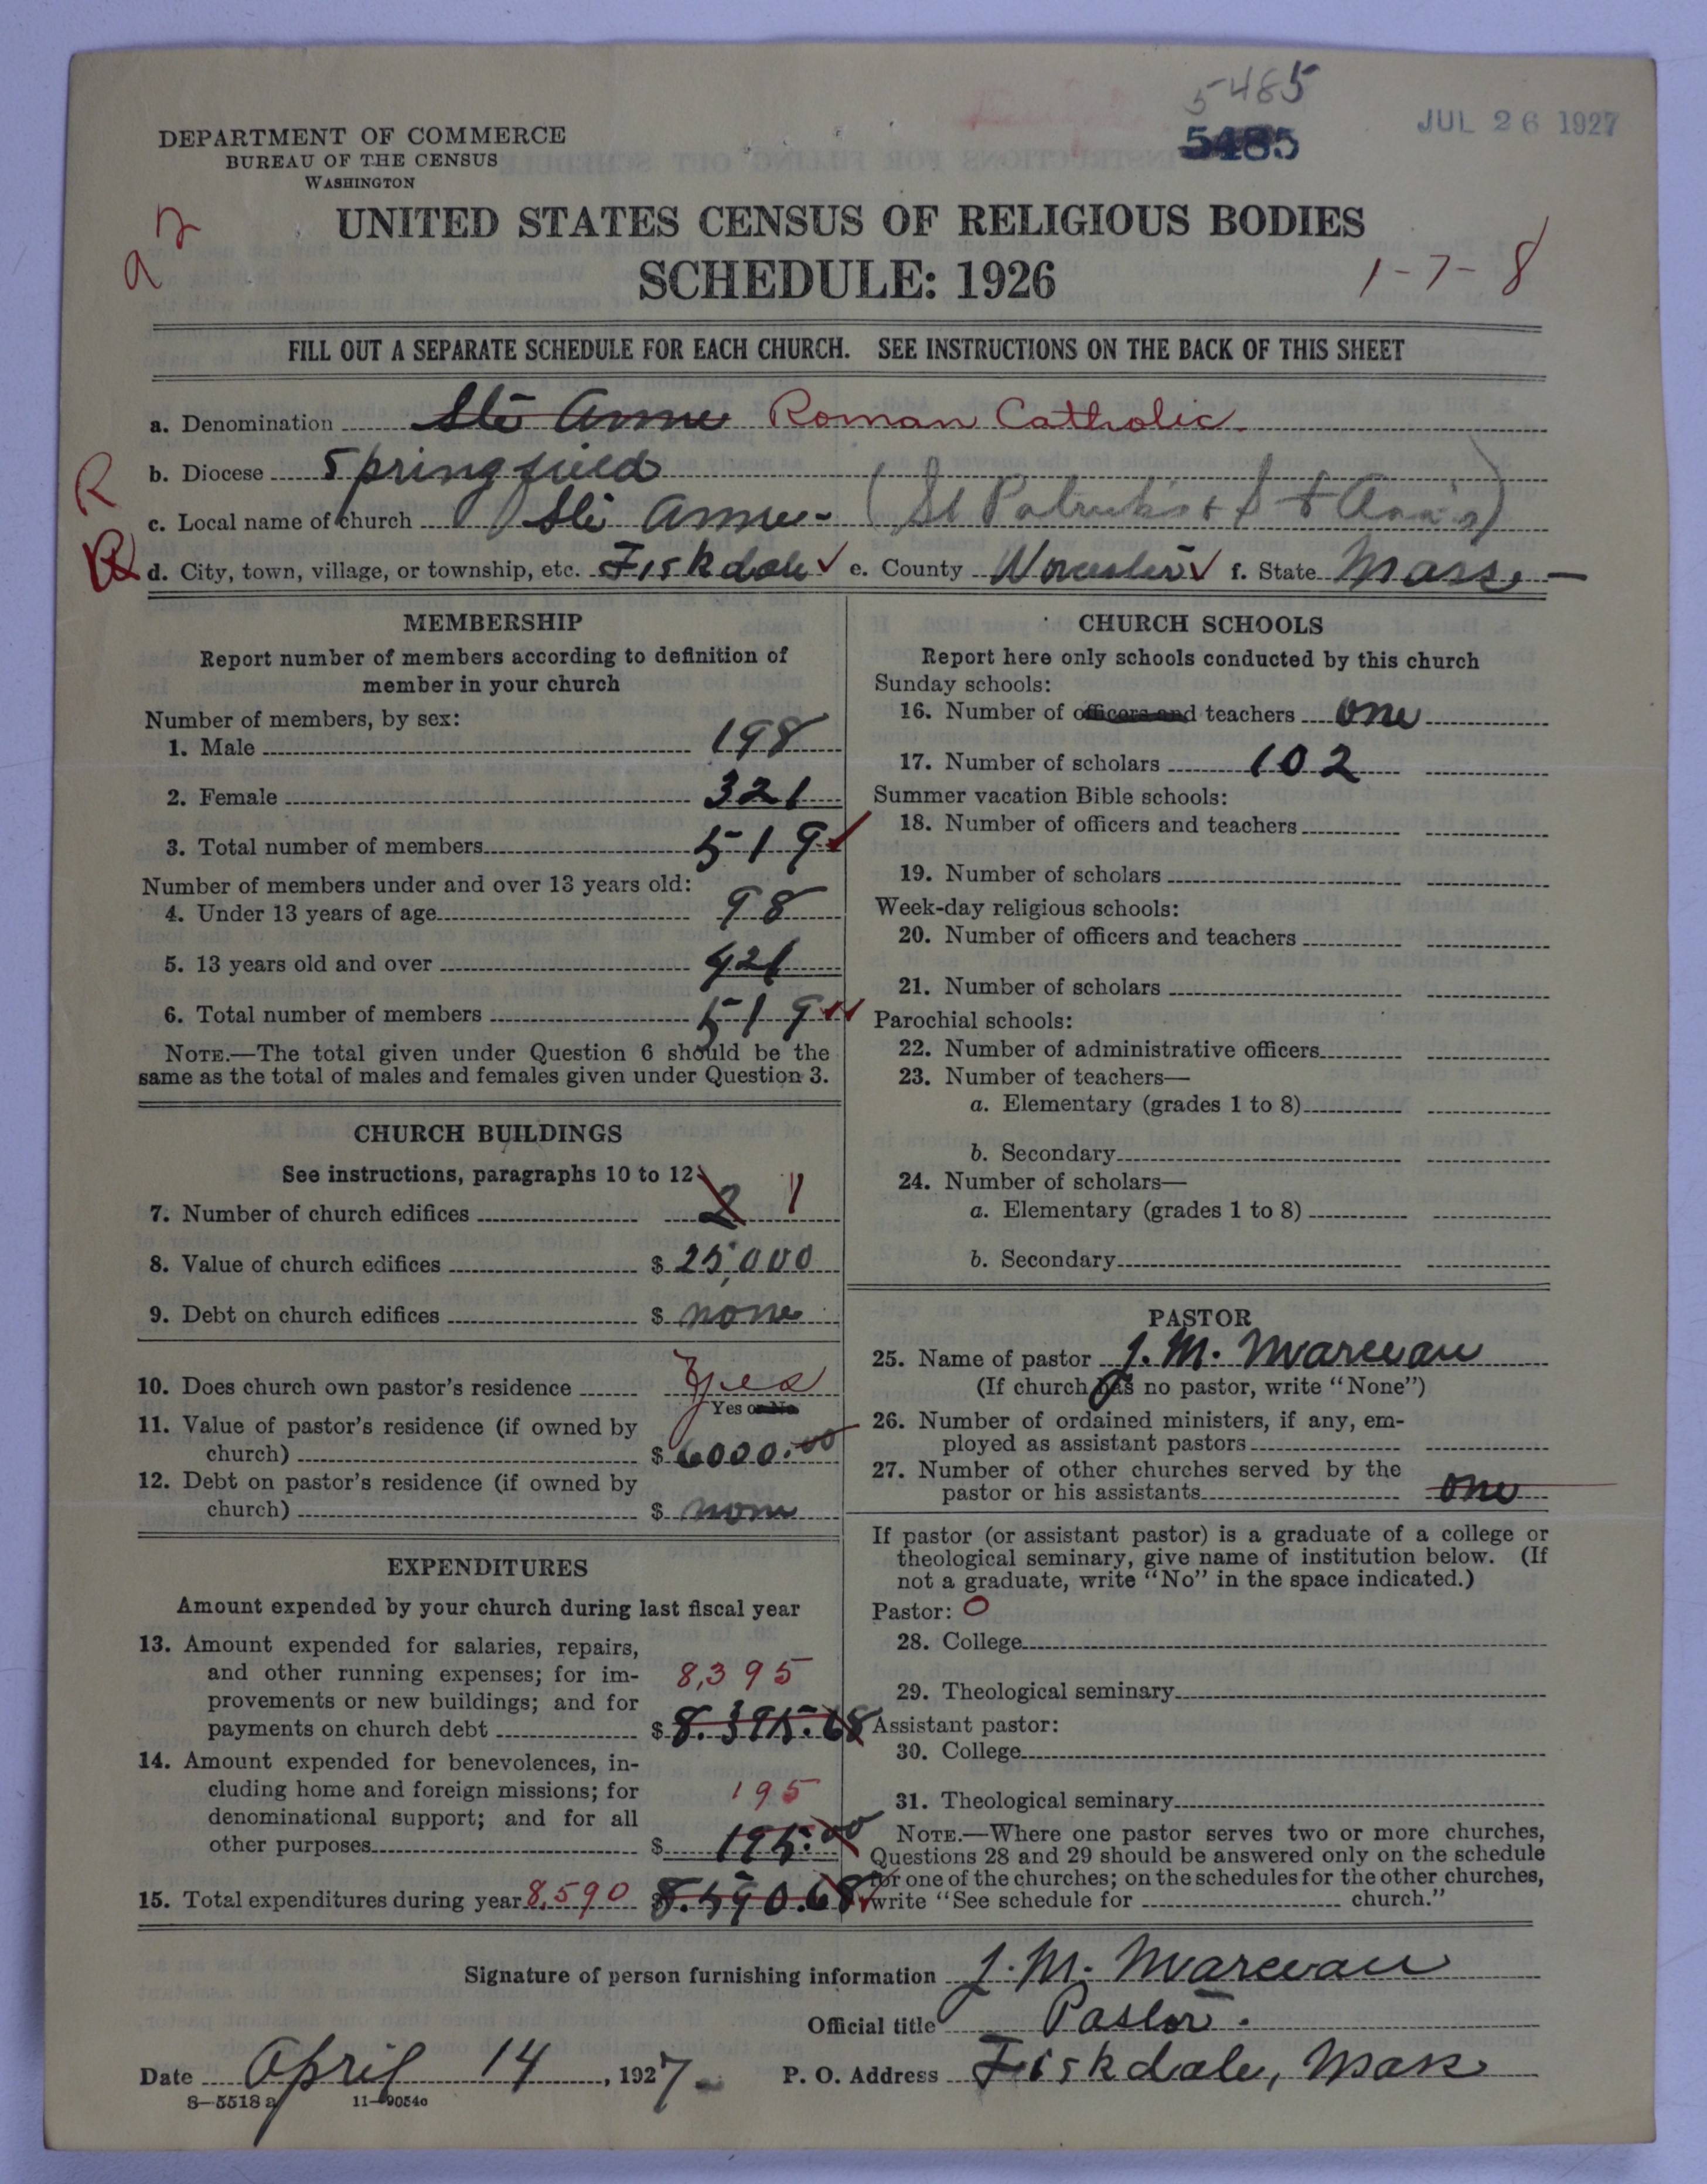 5485
5485
JUL 26 1927
DEPARTMENT OF COMMERCE
BUREAU OF THE CENSUS
WASHINGTON
UNITED STATES CENSUS OF RELIGIOUS BODIES
SCHEDULE: 1926
1-7-8
FILL OUT A SEPARATE SCHEDULE FOR EACH CHURCH. SEE INSTRUCTIONS ON THE BACK OF THIS SHEET
a. Denomination Ste Anne Roman Catholic.
b. Diocese Springfield
R
c. Local name of church Ste Anne - (St Patrick's + St Ann's)
d. City, town, village, or township, etc. Fiskdale ✓ e. County Worcester ✓ f. State Mass. —
MEMBERSHIP
Report number of members according to definition of
member in your church
Number of members, by sex:
1. Male 198
2. Female 321
3. Total number of members 519 ✓
Number of members under and over 13 years old:
4. Under 13 years of age 98
5. 13 years old and over 421
6. Total number of members 519 ✓✓
NOTE.—The total given under Question 6 should be the
same as the total of males and females given under Question 3.
CHURCH BUILDINGS
See instructions, paragraphs 10 to 12
7. Number of church edifices 2 1
8. Value of church edifices $ 25,000
9. Debt on church edifices $ none
10. Does church own pastor's residence yes
Yes or No
11. Value of pastor's residence (if owned by
church) $ 6000.00
12. Debt on pastor's residence (if owned by
church) $ none
EXPENDITURES
Amount expended by your church during last fiscal year
13. Amount expended for salaries, repairs,
and other running expenses; for im-
8,395
provements or new buildings; and for
payments on church debt $ 8.395.68
14. Amount expended for benevolences, in-
cluding home and foreign missions; for
195
denominational support; and for all
other purposes $ 195.00
15. Total expenditures during year 8,590 $ 8.590.68
CHURCH SCHOOLS
Report here only schools conducted by this church
Sunday schools:
16. Number of officers and teachers one
17. Number of scholars 102
Summer vacation Bible schools:
18. Number of officers and teachers
19. Number of scholars
Week-day religious schools:
20. Number of officers and teachers
21. Number of scholars
Parochial schools:
22. Number of administrative officers
23. Number of teachers—
a. Elementary (grades 1 to 8)
b. Secondary
24. Number of scholars—
a. Elementary (grades 1 to 8)
b. Secondary
PASTOR
25. Name of pastor J. M. Marceau
(If church has no pastor, write "None")
26. Number of ordained ministers, if any, em-
ployed as assistant pastors
27. Number of other churches served by the
pastor or his assistants one
If pastor (or assistant pastor) is a graduate of a college or
theological seminary, give name of institution below. (If
not a graduate, write "No" in the space indicated.)
Pastor: O
28. College
29. Theological seminary
Assistant pastor:
30. College
31. Theological seminary
NOTE.—Where one pastor serves two or more churches,
Questions 28 and 29 should be answered only on the schedule
for one of the churches; on the schedules for the other churches,
write "See schedule for church."
Signature of person furnishing information J. M. Marceau
Official title Pastor.
Date April 14, 1927
P. O. Address Fiskdale, Mass
8—5518 a 11—9054a